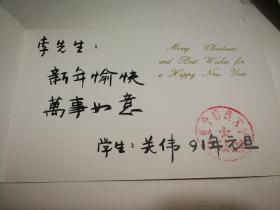 李先生：
Merry Christmas
and Best Wishes for
a Happy New Year
新年愉快
萬事如意
学生：关伟 91年元旦